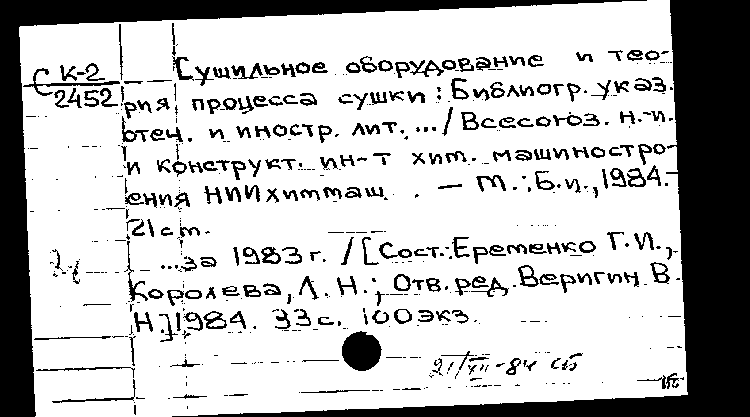 С К-2
2452
Сушильное оборудование и тео-
рия процесса сушки: Библиогр. указ.
отеч. и иностр. лит. .../ Всесоюз. н.-и.
и конструкт. ин-т хим. машиностро-
ения НИИхиммаш. — М.: Б.и., 1984.-
21 см.
...за 1983 г. / [Сост.: Еременко Г.И.,
Королева, Л. Н.; Отв. ред. Веригин В.
Н.] 1984. 33 с. 100 экз.
21/XII-84